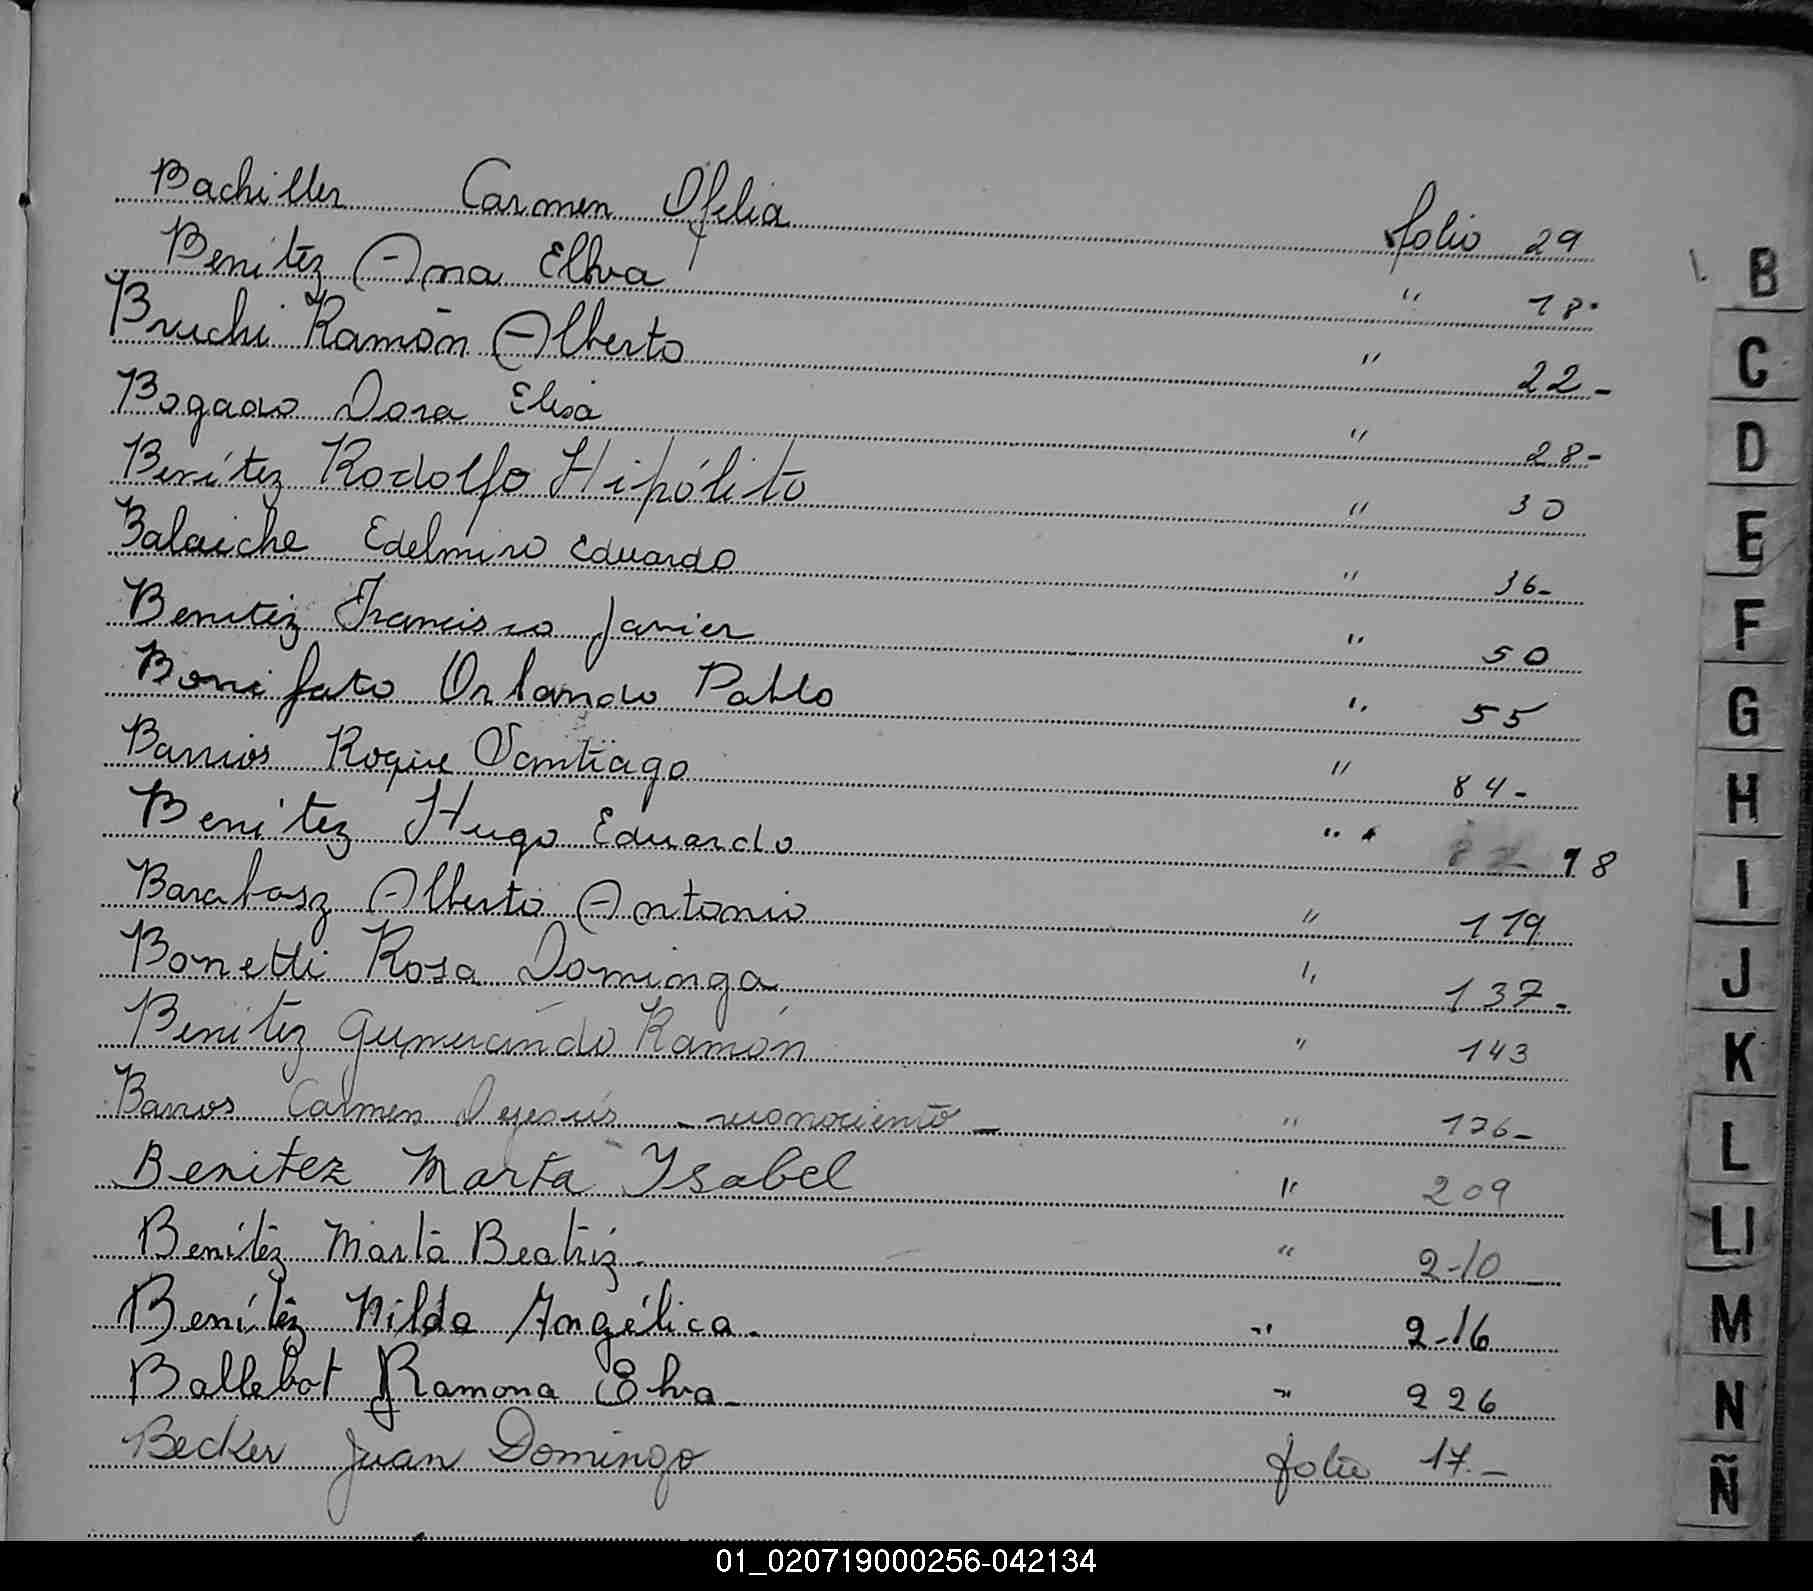 Bachiller Carmen Ofelia folio 29
Benitez Ana Elba " 18-
Bruchi Ramón Alberto " 22-
Bogado Dora Elisa " 28-
Benítez Rodolfo Hipólito " 30
Balaiche Edelmiro Eduardo " 36-
Benitez Francisco Javier " 50
Bonifato Orlando Pablo " 55
Barrios Roque Santiago " 84-
Benitez Hugo Eduardo " 18
Barabasz Alberto Antonio " 119
Bonetti Rosa Dominga " 137-
Benitez Gumercindo Ramón " 143
Barrios Carmen Dejesús - reconociento - " 176-
Benitez Marta Ysabel " 209
Benítez Marta Beatriz. " 210
Benítez Nilda Angélica. " 216
Ballebot Ramona Elva - " 226
Becker Juan Domingo folio 17.-
B
C
D
E
F
G
H
I
J
K
L
Ll
M
N
Ñ
01_020719000256-042134